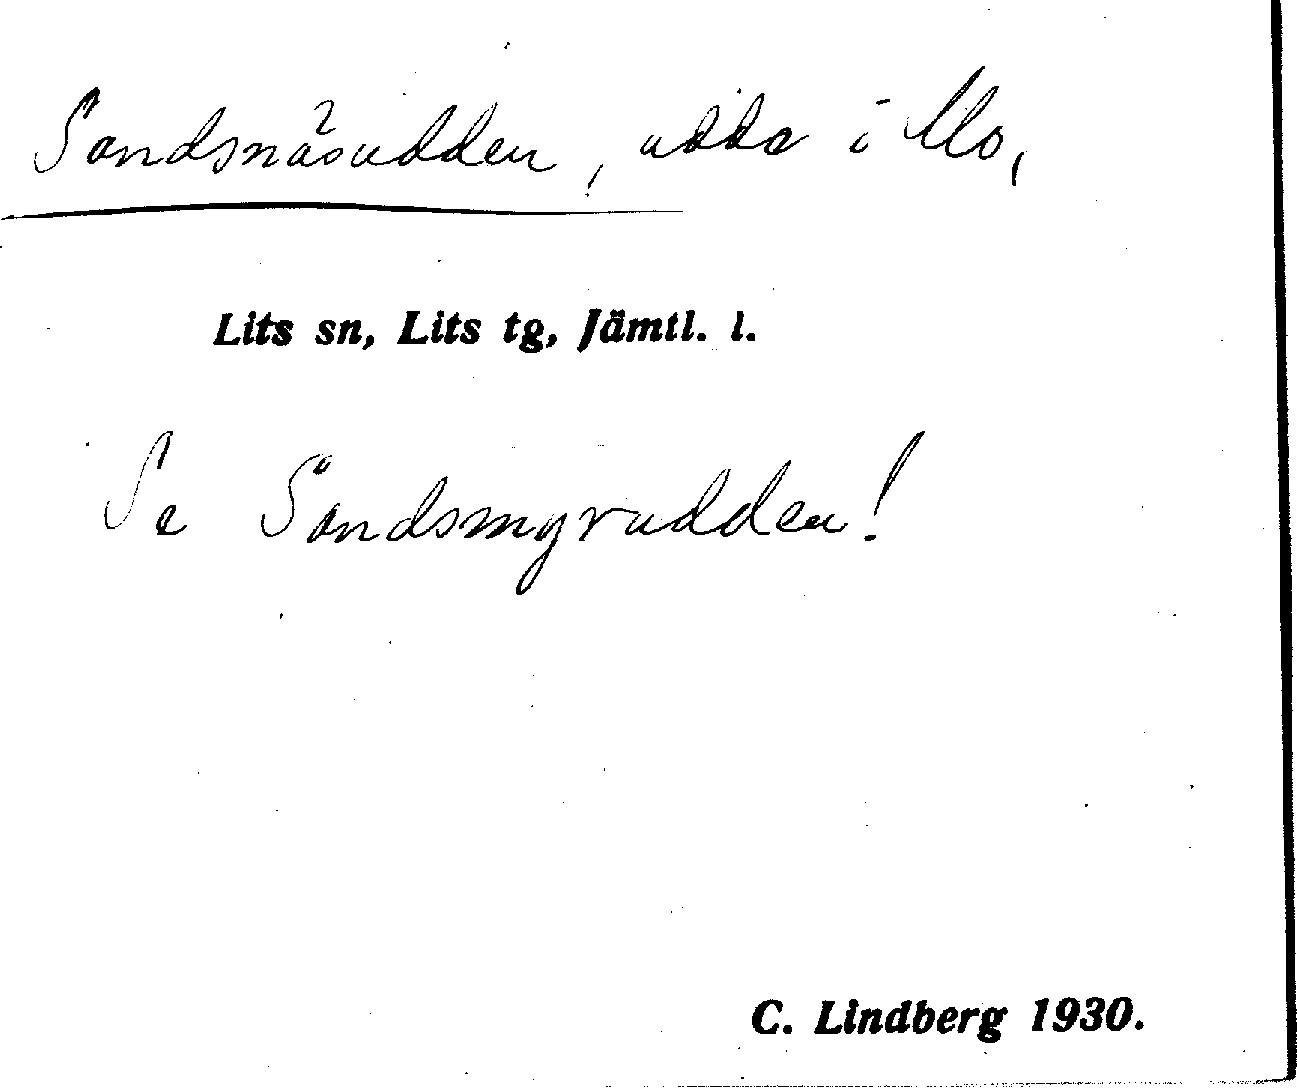 Sandsnäsudden, udde i Mo,
Lits sn, Lits tg, Jämtl. l.
Se Sandsmyrudden!
C. Lindberg 1930.